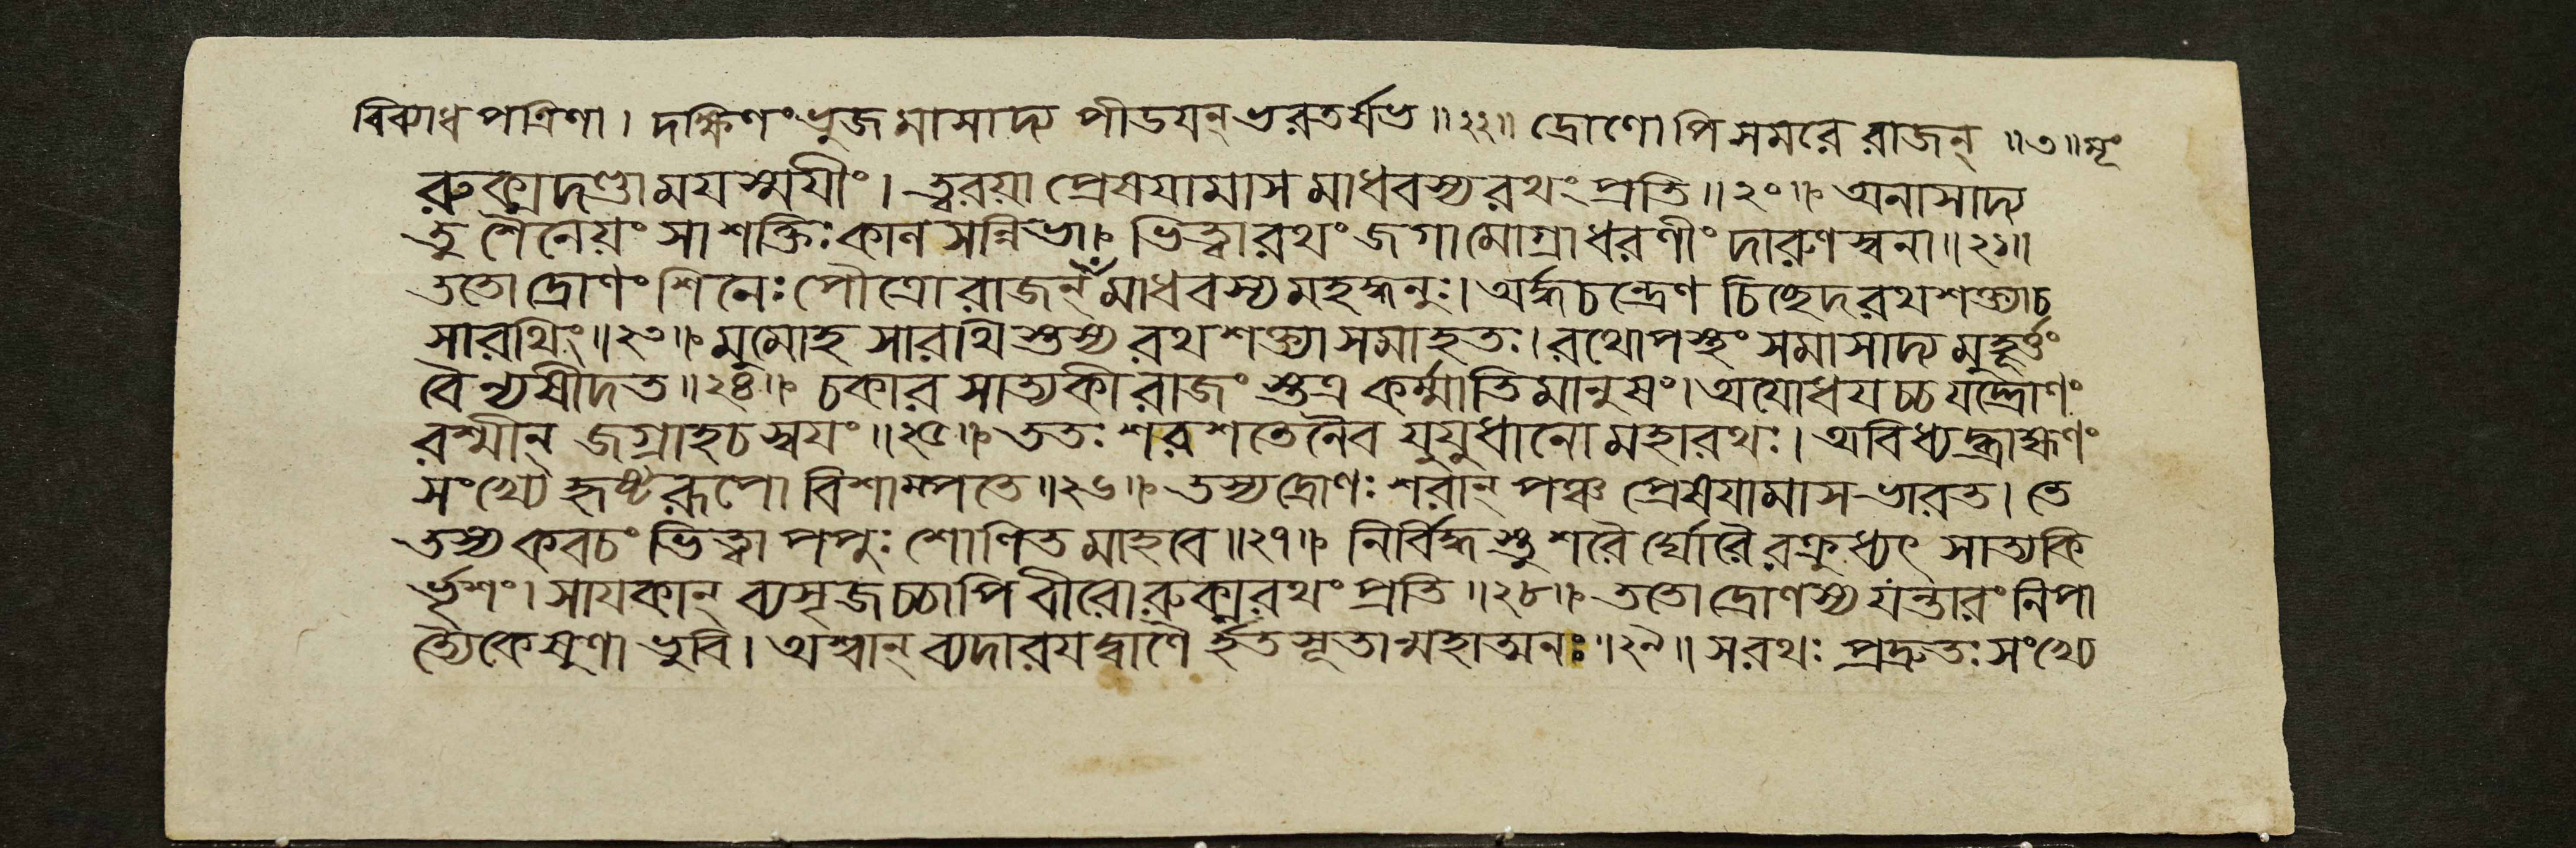 বিব্যাধ পত্রিণা। দক্ষিণং ভুজমাসাদ্য পীডযন্ ভরতর্ষভ॥২২॥ দ্রোণোপি সমরে রাজন্ ॥৩॥
রুক্মদণ্ডামযস্ময়ীং। ত্বরয়া প্রেষযামাস মাধবস্য রথং প্রতি॥২০॥ অনাসাদ্য
তু শৈনেয়ং সা শক্তিঃ কালসন্নিভা। ভিত্ত্বা রথং জগামোগ্রা ধরণীং দারুণস্বনা॥২১॥
ততো দ্রোণং শিনেঃ পৌত্রো রাজন্ মাধবস্য মহদ্ধনুঃ। অর্দ্ধচন্দ্রেণ চিচ্ছেদ রথশক্ত্যা চ
সারথিং॥২৩॥ মুমোহ সারথিস্তস্য রথশক্ত্যা সমাহতঃ। রথোপস্থং সমাসাদ্য মুহূর্ত্তং
বৈ ন্যষীদত॥২৪॥ চকার সাত্যকী রাজংস্তত্র কর্ম্মাতিমানুষং। অযোধযচ্চ যদ্দ্রোণং
রশ্মীন্ জগ্রাহ চ স্বযং॥২৫॥ ততঃ শরশতেনৈব যুযুধানো মহারথঃ। অবিধ্যদ্ব্রাহ্মণং
সংখ্যে হৃষ্টরূপো বিশাম্পতে॥২৬॥ তস্য দ্রোণঃ শরান্ পঞ্চ প্রেষযামাস ভারত। তে
তস্য কবচং ভিত্ত্বা পপুঃ শোণিতমাহবে॥২৭॥ নির্বিদ্ধস্তু শরৈর্ঘোরৈরক্রুধ্যৎ সাত্যকি
র্ভৃশং। সাযকান্ ব্যসৃজচ্চাপি বীরো রুক্মরথং প্রতি॥২৮॥ ততো দ্রোণস্য যন্তারং নিপা
ত্যৈকেষুণা ভুবি। অশ্বান্ ব্যদারযদ্বাণৈর্হতসূতান্মহাত্মনঃ॥২৯॥ স রথঃ প্রদ্রুতঃ সংখ্যে